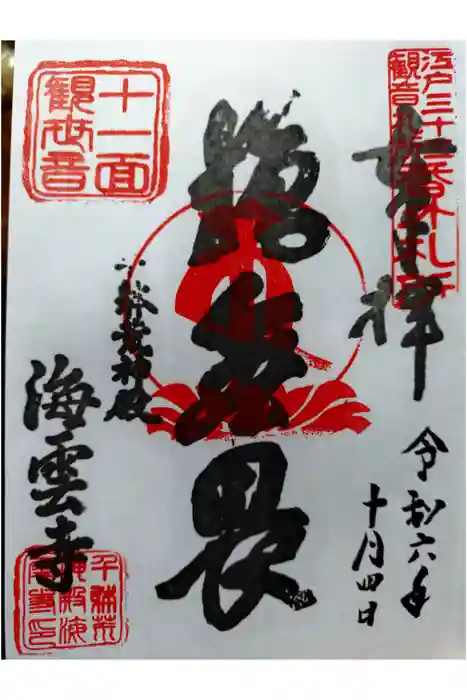 奉拝
江戸三十三
観音札所
番外札所
令和六年
十月四日
施無畏
十一面
観世音
千躰荒神殿
海雲寺
千躰荒
神殿海
雲寺印